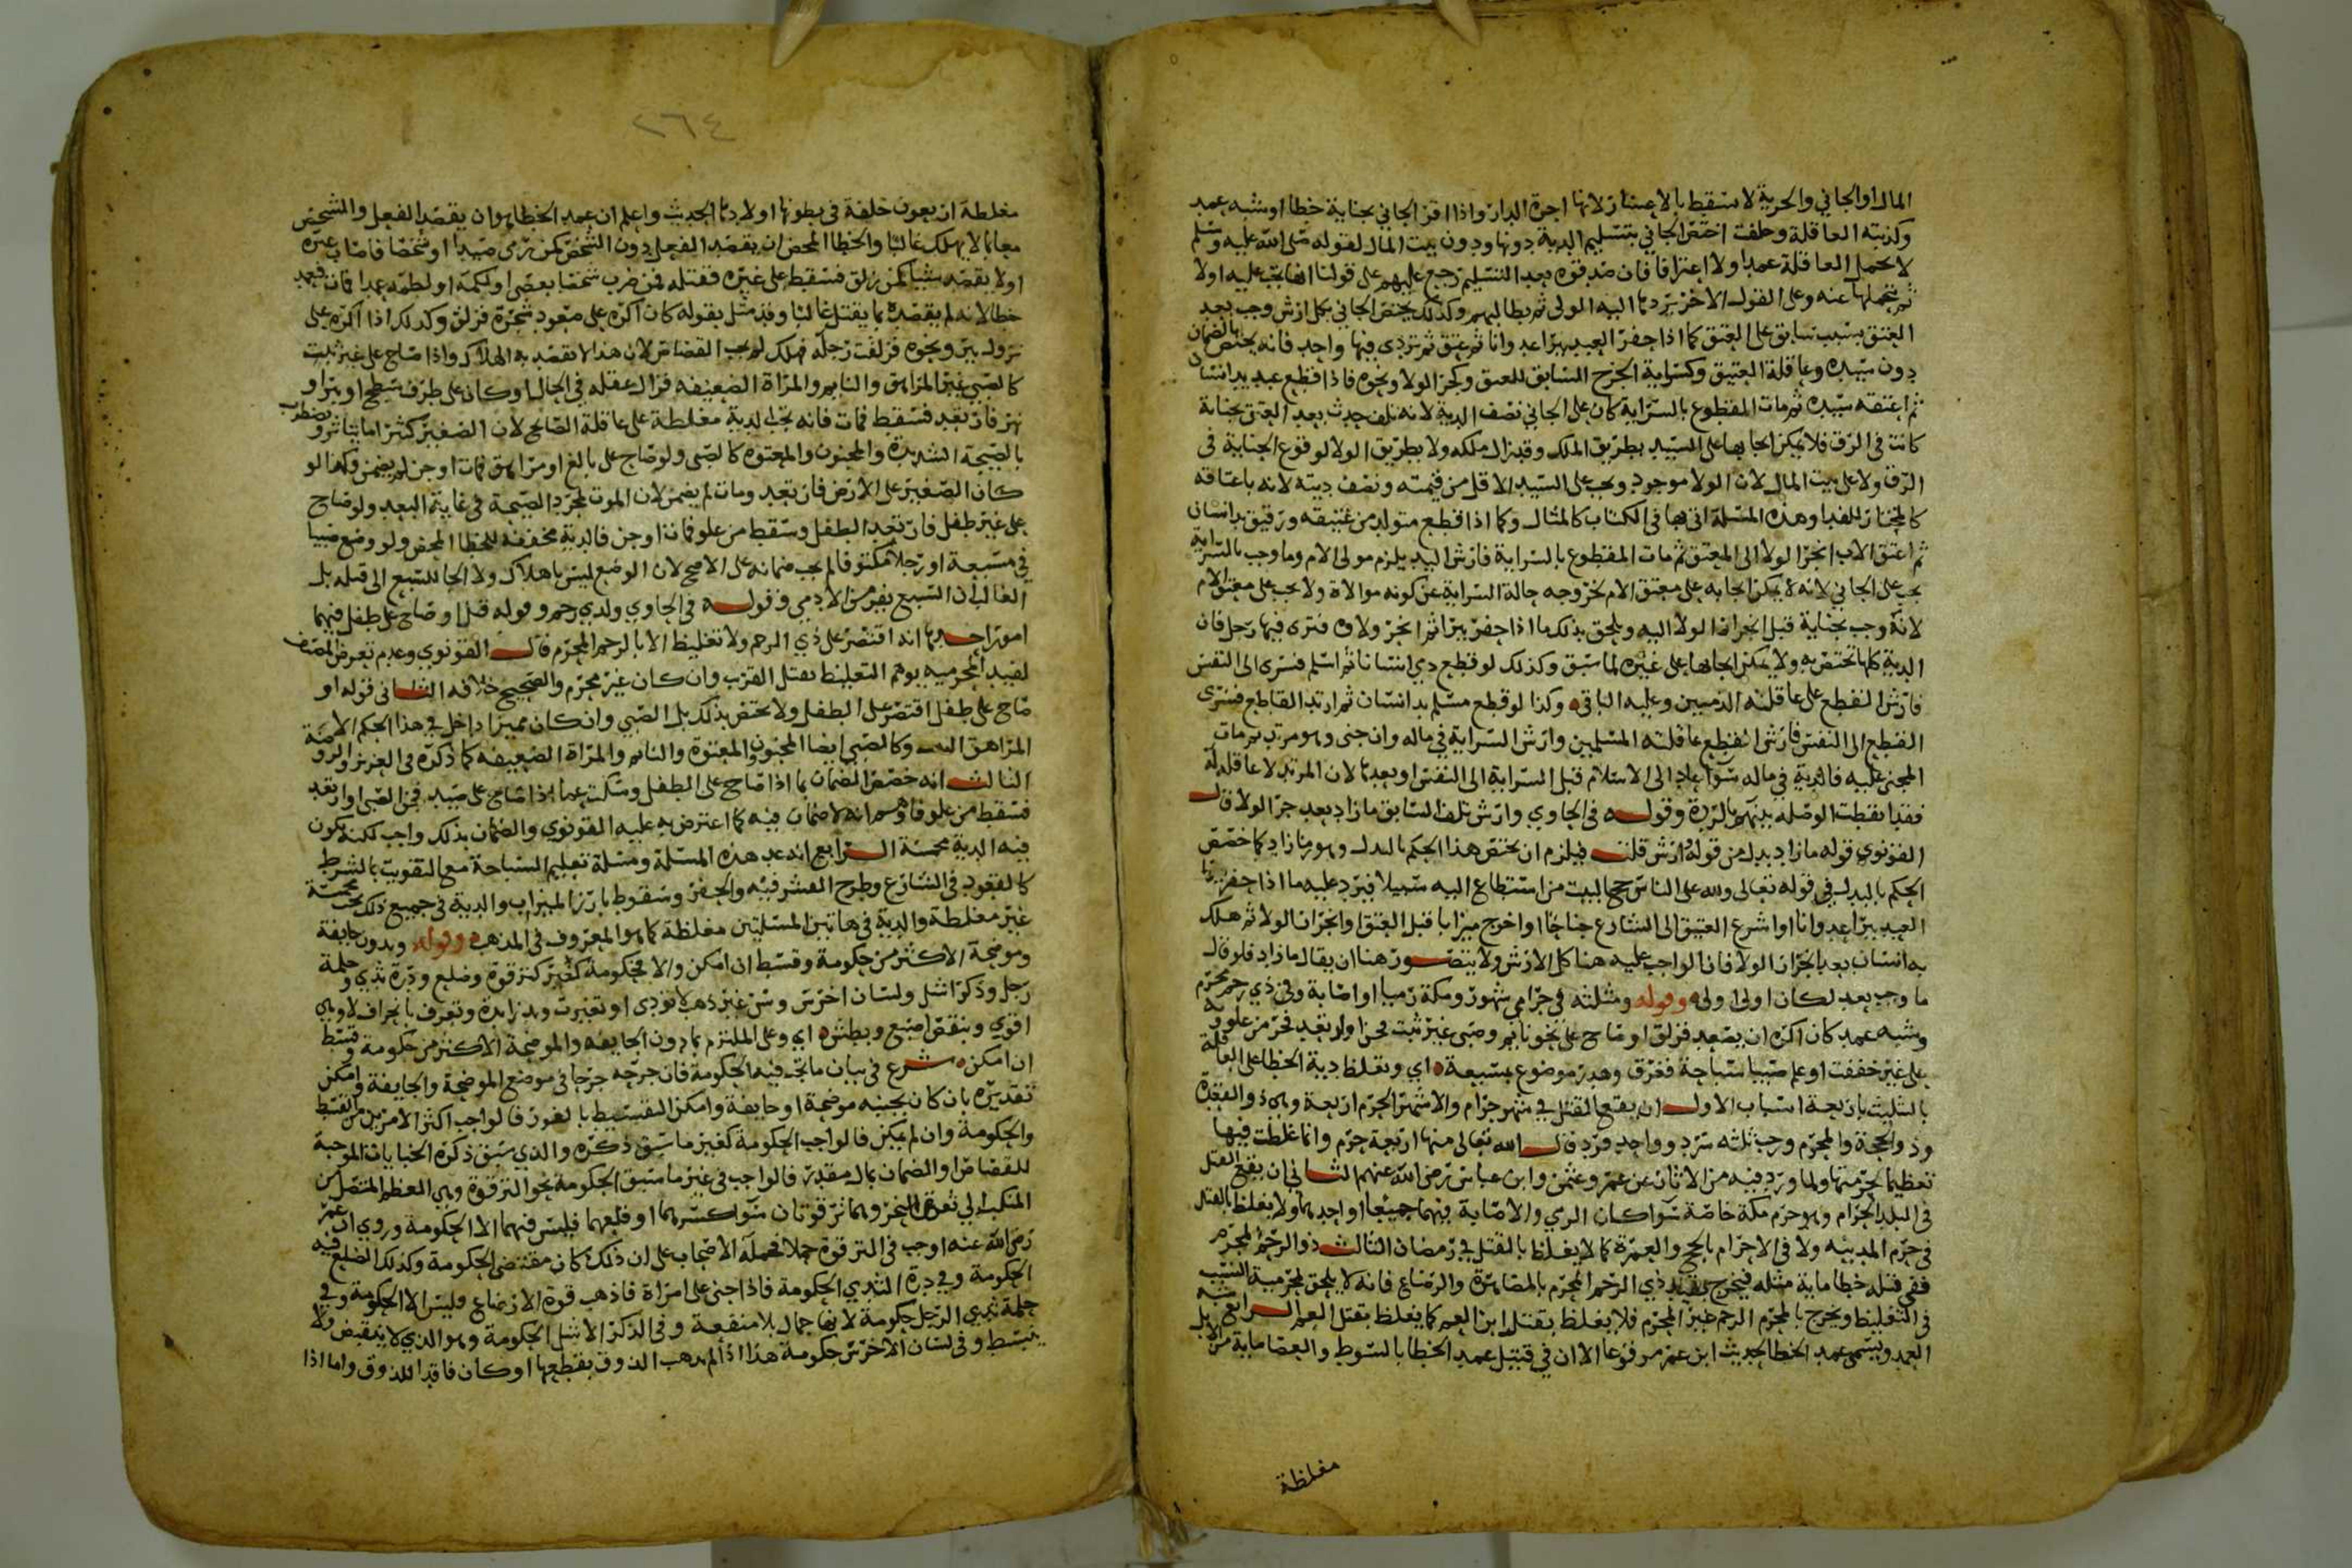 المال او الجاني والحرية لا تسقط بالاعسار لانها اجرة الدار واذا اقر الجاني بجناية خطا او شبه عمد
وكذبته العاقلة وحلفت اختص الجاني بتسليم الدية دونها ودون بيت المال لقوله صلى الله عليه وسلم
لا تحمل العاقلة عمدا ولا اعترافا فان صدقوه بعد التسليم رجع عليهم على قولنا انها تجب عليه اولا
ثم تتحملها عنه وعلى القول الاخر يردها اليه الولي ثم يطالبهم وكذلك يختص الجاني بكل ارش وجب بعد
العتق بسبب سابق على العتق كما اذا حفر العبد بيرا عدوانا ثم عتق ثم تردى فيها واحد فانه يختص بالضمان
دون سيده وعاقلة العتيق وكسراية الجرح السابق للعتق وكجر الولا ونحوه فاذا قطع عبد يد انسان
ثم اعتقه سيده ثم مات المقطوع بالسراية كان على الجاني نصف الدية لانه تلف حدث بعد العتق بجناية
كانت في الرق فلا يمكن ايجابها على السيد بطريق الملك وقد زال ملكه ولا بطريق الولا لوقوع الجناية في
الرق ولا على بيت المال لان الولا موجود ويجب على السيد الاقل من قيمته ونصف ديته لانه باعتاقه
كالمختار للفدا وهذه المسلة اتى بها في الكتاب كالمثال وكما اذا قطع متولد من عتيقه ورقيق يد انسان
ثم اعتق الاب انجر الولا الى المعتق ثم مات المقطوع بالسراية فارش اليد يلزم مولى الام وما وجب بالسراية
يجب على الجاني لانه لا يمكن ايجابه على معتق الام لخروجه حالة السراية عن كونه موالاة ولا يجب على معتق الام
لانه وجب بجناية قبل انجرار الولا اليه ويلحق بذلك ما اذا حفر بيرا ثم انجر ولاوه فتردى فيها رجل فان
الدية كلها تختص به ولا يمكن ايجابها على غيره لما سبق وكذلك لو قطع ذمي انسانا ثم اسلم فسرى الى النفس
فارش القطع على عاقلته الذميين وعليه الباقي وكذا لو قطع مسلم يد انسان ثم ارتد القاطع فسرى
القطع الى النفس فارش القطع عاقلته المسلمين وارش السراية في ماله وان جنى وهو مرتد ثم مات
المجني عليه فالدية في ماله سوا عاد الى الاسلام قبل السراية الى النفس او بعدها لان المرتد لا عاقلة له
فقد انقطعت الوصلة بينهم بالردة وقوله في الحاوي وارش تلف السابق ما زاد بعد جر الولا قال
القونوي قوله ما زاد بدل من قوله وارش قلت فيلزم ان يختص هذا الحكم بالبدل وهو ما زاد كما خصص
الحكم بالبدل في قوله تعالى ولله على الناس حج البيت من استطاع اليه سبيلا فيرد عليه ما اذا حفر
العبد بيرا عدوانا او اشرع العتيق الى الشارع جناحا او اخرج ميزابا قبل العتق او انجرار الولا ثم هلك
به انسان بعد انجرار الولا فان الواجب عليه هنا كل الارش ولا يتصور هنا ان يقال ما زاد فلو قال
ما وجب بعد لكان اولى وقوله ومثلثه في حرامي شهور ومكة رميا او اصابة وفي ذي رحم محرم
وشبه عمد كان اكره ان يصعد فزلق او صاح على نحو نايم وصبي غير ثبت فجن او ارتعد فخر من علو به
على غير خففت او علم صبيا سباحة فغرق وهدر موضوع بمسبعة اي وتغلظ دية الخطا على العاقلة
بالتثليث باربعة اسباب الاول ان يقع القتل في شهر حرام والاشهر الحرم اربعة وهي ذو القعدة
وذو الحجة والمحرم ورجب ثلثه سرد وواحد فرد قال الله تعالى منها اربعة حرم وانما غلظت فيها
تعظيما لحرمتها ولما ورد فيه من الاثار عن عمر وعثمن وابن عباس رضي الله عنهم الثاني ان يقع القتل
في البلد الحرام وهو حرم مكة خاصة سوا كان الرمي والاصابة فيهما جميعا او احدهما ولا يغلظ بالقتل
في حرم المدينة ولا في الاحرام بالحج والعمرة كما لا يغلظ بالقتل في رمضان الثالث ذو الرحم المحرم
ففي قتله خطا ماية مثلثه فيخرج بقيد ذي الرحم المحرم بالمصاهرة والرضاع فانه لا يلحق لمحرمية النسب
في التغليظ ويخرج بالمحرم الرحم غير المحرم فلا يغلظ بقتل ابن العم كما يغلظ بقتل العم الرابع شبه
العمد ويسمى عمد الخطا لحديث ابن عمر مرفوعا الا ان في قتيل عمد الخطا بالسوط والعصا ماية من الابل
مغلظة
٢٦٤
مغلظة اربعون خلفة في بطونها اولادها الحديث واعلم ان عمد الخطا هو ان يقصد الفعل والشخص
معا بما لا يهلك غالبا والخطا المحض ان يقصد الفعل دون الشخص كمن رمى صيدا او شخصا فاصاب غيره
او لا يقصد شيا كمن زلق فسقط على غيره فقتله فمن ضرب شخصا بعصى او لكمه او لطمه عمدا فمات فعمد
خطا لانه لم يقصده بما يقتل غالبا وقد مثل بقوله كان اكره على صعود شجرة فزلق وكذلك اذا اكره على
نزول بير ونحوه فزلفت رجله فهلك لم يجب القصاص لان هذا لا يقصد به الهلاك واذا صاح على غير ثبت
كالصبي غير المراهق والنايم والمراة الضعيفه فزال عقله في الحال او كان على طرف سطح او بير او
نهر فارتعد فسقط فمات فانه تجب الدية مغلظة على عاقلة الصايح لان الصغير كثيرا ما يتاثر ويضطرب
بالصيحة الشديدة والمجنون والمعتوه كالصبي ولو صاح على بالغ او مراهق فمات او جن لم يضمن وكذا لو
كان الصغير على الارض فارتعد ومات لم يضمن لان الموت لمجرد الصيحة في غاية البعد ولو صاح
على غير طفل فارتعد الطفل وسقط من علو فمات او جن فالدية مخففة للخطا المحض ولو وضع صبيا
في مسبعة او رجلا مكتوفا لم يجب ضمانه على الاصح لان الوضع ليس باهلاك ولا الجا للسبع الى قتله بل
الغالب ان السبع يفر من الادمي وقوله في الحاوي ولذي رحم وقوله قبل او صاح على طفل فيهما
امور احدها انه اقتصر على ذي الرحم ولا تغليظ الا بالرحم المحرم قال القونوي وعدم تعرض المصنف
لقيد المحرميه يوهم التغليظ بقتل القريب وان كان غير محرم والصحيح خلافه الثاني قوله او
صاح على طفل اقتصر على الطفل ولا يختص بذلك بل الصبي وان كان مميزا داخل في هذا الحكم
وكالصبي ايضا المجنون والمعتوه والنايم والمراة الضعيفه كما ذكره في العزيز والروضة
الثالث انه خصص الضمان بما اذا صاح على الطفل وسكت عما اذا صاح على صيد فجن الصبي او ارتعد
فسقط من علو فاوهم انه لا ضمان فيه كما اعترض به عليه القونوي والضمان بذلك واجب لكنه تكون
فيه الدية مخمسة الرابع انه عد هذه المسلة ومسلة تعليم السباحة مع التفويت بالشرط
كالقعود في الشارع وطرح القشر فيه والحفر وسقوط بارز الميزاب والدية في جميع ذلك مخمسة
غير مغلظة والدية في هاتين المسلتين مغلظة كما هو المعروف في المذهب وقوله وبدون جايفة
وموضحة الاكثر من حكومة وقسط ان امكن والا فحكومة كغير كترقوة وضلع ودرة ثدي وحلمة
رجل وذكر اشل ولسان اخرس وسن غير ذهب
اقوي وبنقص اصبع وبطش اي وعلى الملتزم بما دون الجايفه والموضحة الاكثر من حكومة وقسط
ان امكن شرع في بيان ما تجب فيه الحكومة فان جرحه جرحا في موضع الموضحة والجايفة وامكن
تقديره بان كان بجنبه موضحة او جايفة وامكن التقسيط بالغور فالواجب اكثر الامرين من القسط
والحكومة وان لم يمكن فالواجب الحكومة كغير ما سبق ذكره والذي سبق ذكره الجنايات الموجبة
للقصاص او الضمان بمال مقدر فالواجب في غير ما سبق الحكومة نحو الترقوة وهي العظم المتصل من
المنكب الى ثغرة النحر وهما ترقوتان سوا كسرهما او قلعهما فليس فيهما الا الحكومة وروي ان عمر
رضي الله عنه اوجب في الترقوة جملا فحمله الاصحاب على ان ذلك كان مقتضى الحكومة وكذلك الضلع فيه
الحكومة وفي درة الثدي الحكومة فاذا جنى على امراة فاذهب قوة الارضاع فليس الا الحكومة وفي
حلمة ثدي الرجل حكومة لانها جمال بلا منفعة وفي الذكر الاشل الحكومة وهو الذي لا ينقبض ولا
ينبسط وفي لسان الاخرس حكومة هذا اذا لم يذهب الذوق بقطعها او كان فاقد الذوق واما اذا